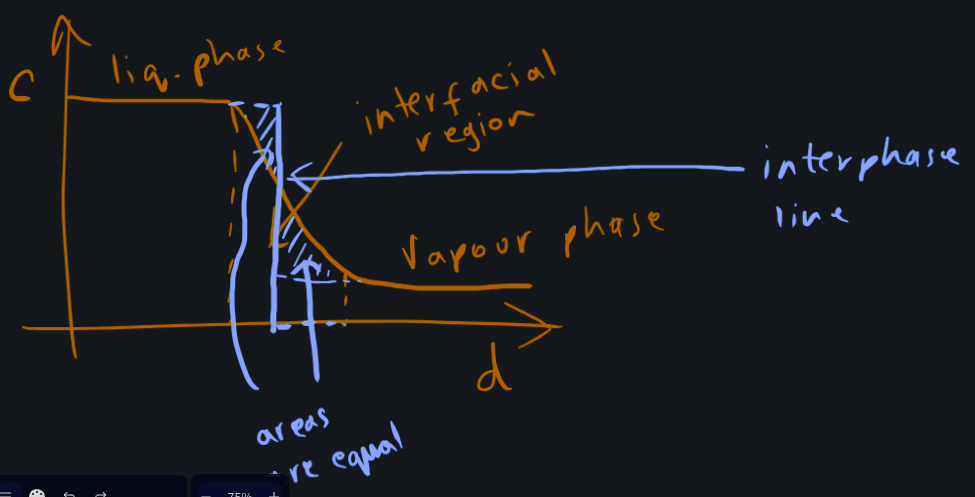 C
liq. phase
interfacial
region
interphase
line
Vapour phase
d
areas
are equal
75%